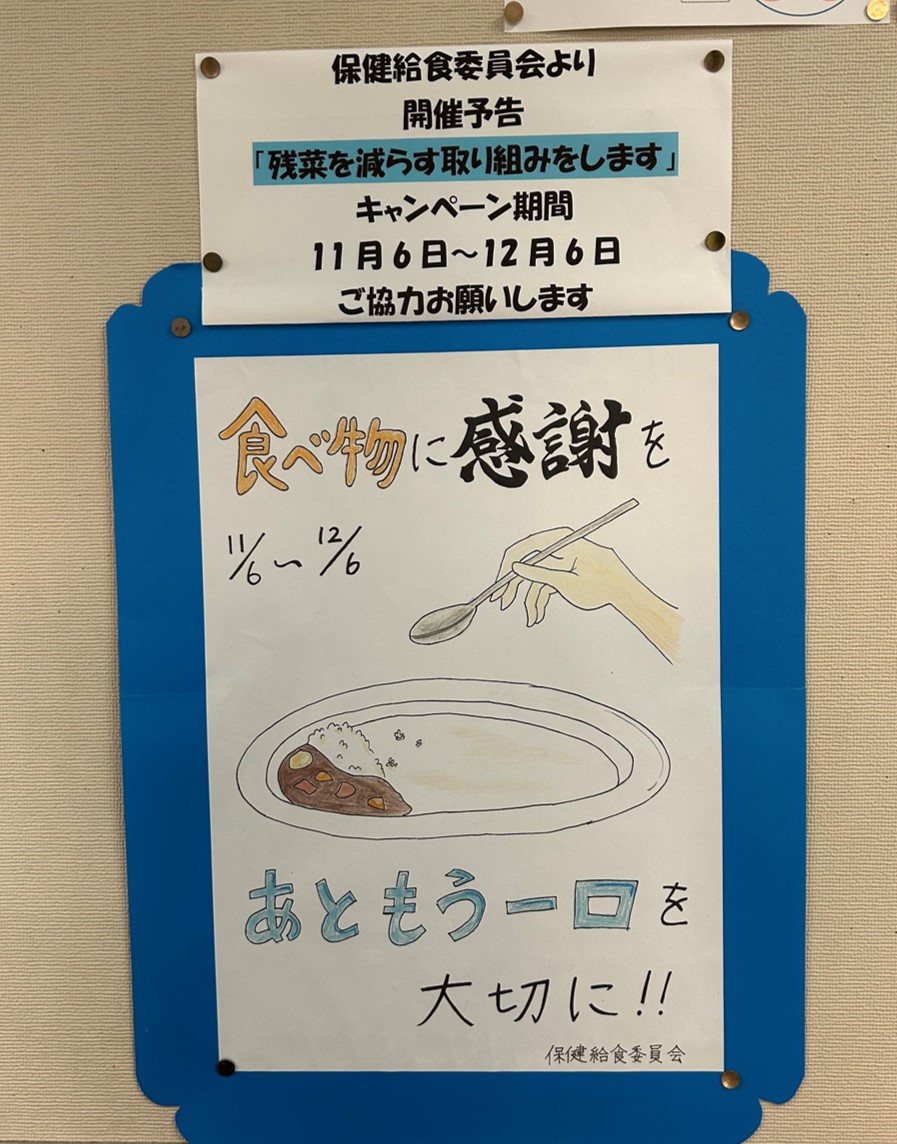 保健給食委員会より
開催予告
「残菜を減らす取り組みをします」
キャンペーン期間
11月6日～12月6日
ご協力お願いします
食べ物に感謝を
11/6～12/6
あともう一口を
大切に!!
保健給食委員会